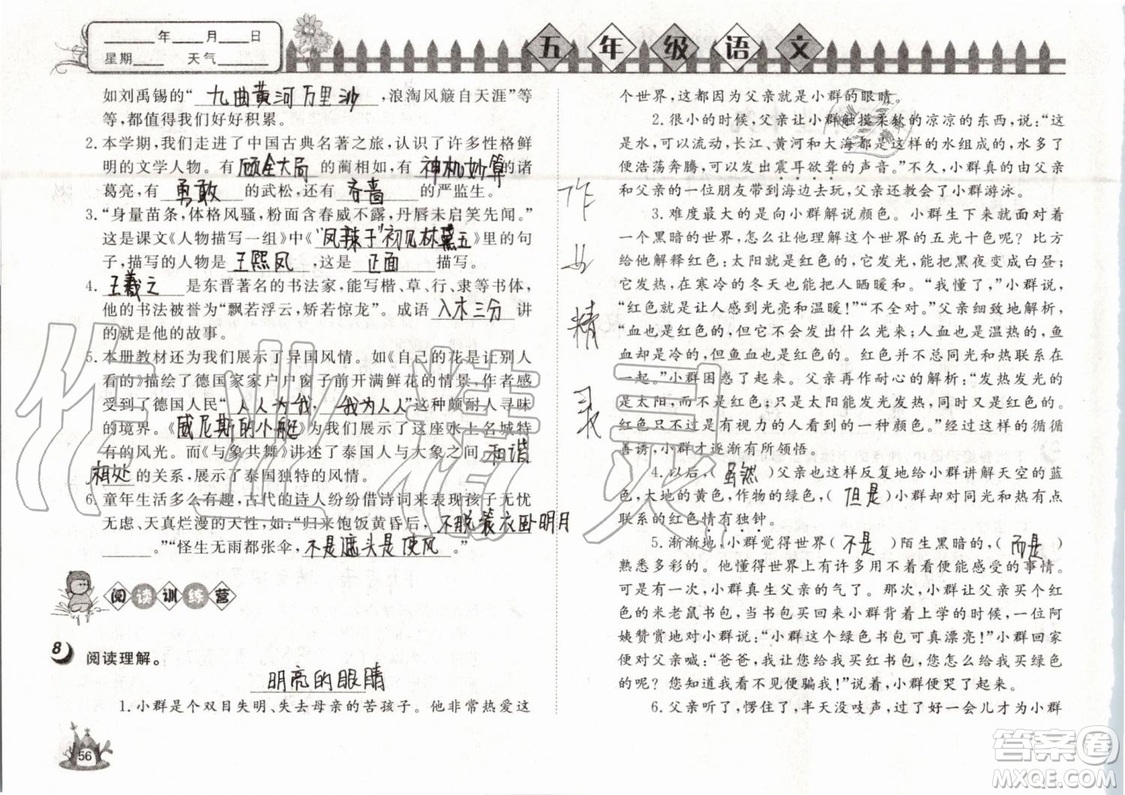 ____年____月____日
星期____ 天气____
五年级语文
如刘禹锡的“九曲黄河万里沙，浪淘风簸自天涯”等
等，都值得我们好好积累。
2.本学期，我们走进了中国古典名著之旅，认识了许多性格鲜
明的文学人物。有顾全大局的蔺相如，有神机妙算的诸
葛亮，有勇敢的武松，还有吝啬的严监生。
3.“身量苗条，体格风骚，粉面含春威不露，丹唇未启笑先闻。”
这是课文《人物描写一组》中《“凤辣子”初见林黛玉》里的句
子，描写的人物是王熙凤，这是正面描写。
4.王羲之是东晋著名的书法家，能写楷、草、行、隶等书体，
他的书法被誉为“飘若浮云，矫若惊龙”。成语入木三分讲
的就是他的故事。
5.本册教材还为我们展示了异国风情。如《自己的花是让别人
看的》描绘了德国家家户户窗子前开满鲜花的情景，作者感
受到了德国人民“人人为我，我为人人”这种颇耐人寻味
的境界。《威尼斯的小艇》展示了这座水上名城特
有的风光。而《与象共舞》讲述了泰国人与大象之间和谐
相处的关系，展示了泰国独特的风情。
6.童年生活多么有趣，古代的诗人纷纷借诗词来表现孩子无忧
无虑、天真烂漫的天性，如“归来饱饭黄昏后，不脱蓑衣卧明月
____。”“怪生无雨都张伞，不是遮头是使风。”
阅读训练营
8 阅读理解。
明亮的眼睛
1.小群是个双目失明、失去母亲的苦孩子。他非常热爱这
56
个世界，这都是因为父亲是小群的眼睛。
2.很小的时候，父亲让小群触摸柔软的凉凉的东西，说：“这
就是水，水多了可以流动，长江、黄河和大海都是这么来的，水多了
便浩荡奔腾，可以发出震耳欲聋的声音。”不久，小群真的由父亲
和父亲的一位朋友带到海边去玩了，父亲还教会了小群游泳。
3.难度最大的是向小群解说颜色。小群生下来就面对一
片黑暗的世界，怎么让他理解世界的五光十色呢？比方
给他解释红色：太阳是红色的，它能把黑夜变成白昼；
它有热度，在寒冷的冬天也能把人晒暖。小群高兴地说：
“红色就是光亮和温暖！”“不全对。”父亲细致地解析，
“血也是红色的，但它不会发出什么光来；人血是温热的，鱼
血却是冷的，但鱼血也是红色的。红色的光和热联系在
一起。”小群困惑了起来。父亲再作耐心的解析：“发热发光的
是太阳，而红色不是太阳；只是太阳能发光发热，同时又是红色的。
红色只是有视力的人看到的一种颜色。”经过这样的循循
善诱，多次重复，小群才逐渐有所领悟。
4.以后，（虽然）父亲也这样反复地给小群讲解天空的蓝
色，大地的黄色，作物的绿色，（但是）小群却对同光和热有
联系的红色情有独钟。
5.渐渐地，小群觉得世界（不是）陌生黑暗的，（而是）
熟悉多彩的。他因此做出了许多别人看来不可能的事情。
有一次，小群真生父亲的气了。父亲给小群买了一个绿色
的米老鼠书包，当小群背着书包去上学的时候，一位阿
姨赞赏地对小群说：“小群这个绿色书包可真漂亮！”小群回家
便对父亲喊：“爸爸，我让您给我买红书包，您为什么给我
买绿书包？您骗人！您骗人！”说着，小群竟呜呜地哭了起来。
6.父亲听了，愣住了，半天没吱声，好一会儿才为小群
作业精灵
作业精灵
答案圈
MXQE.COM